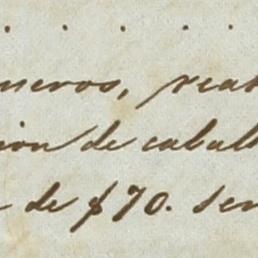 . . . . . .
neros, reat
ion de caball
de $70. ser